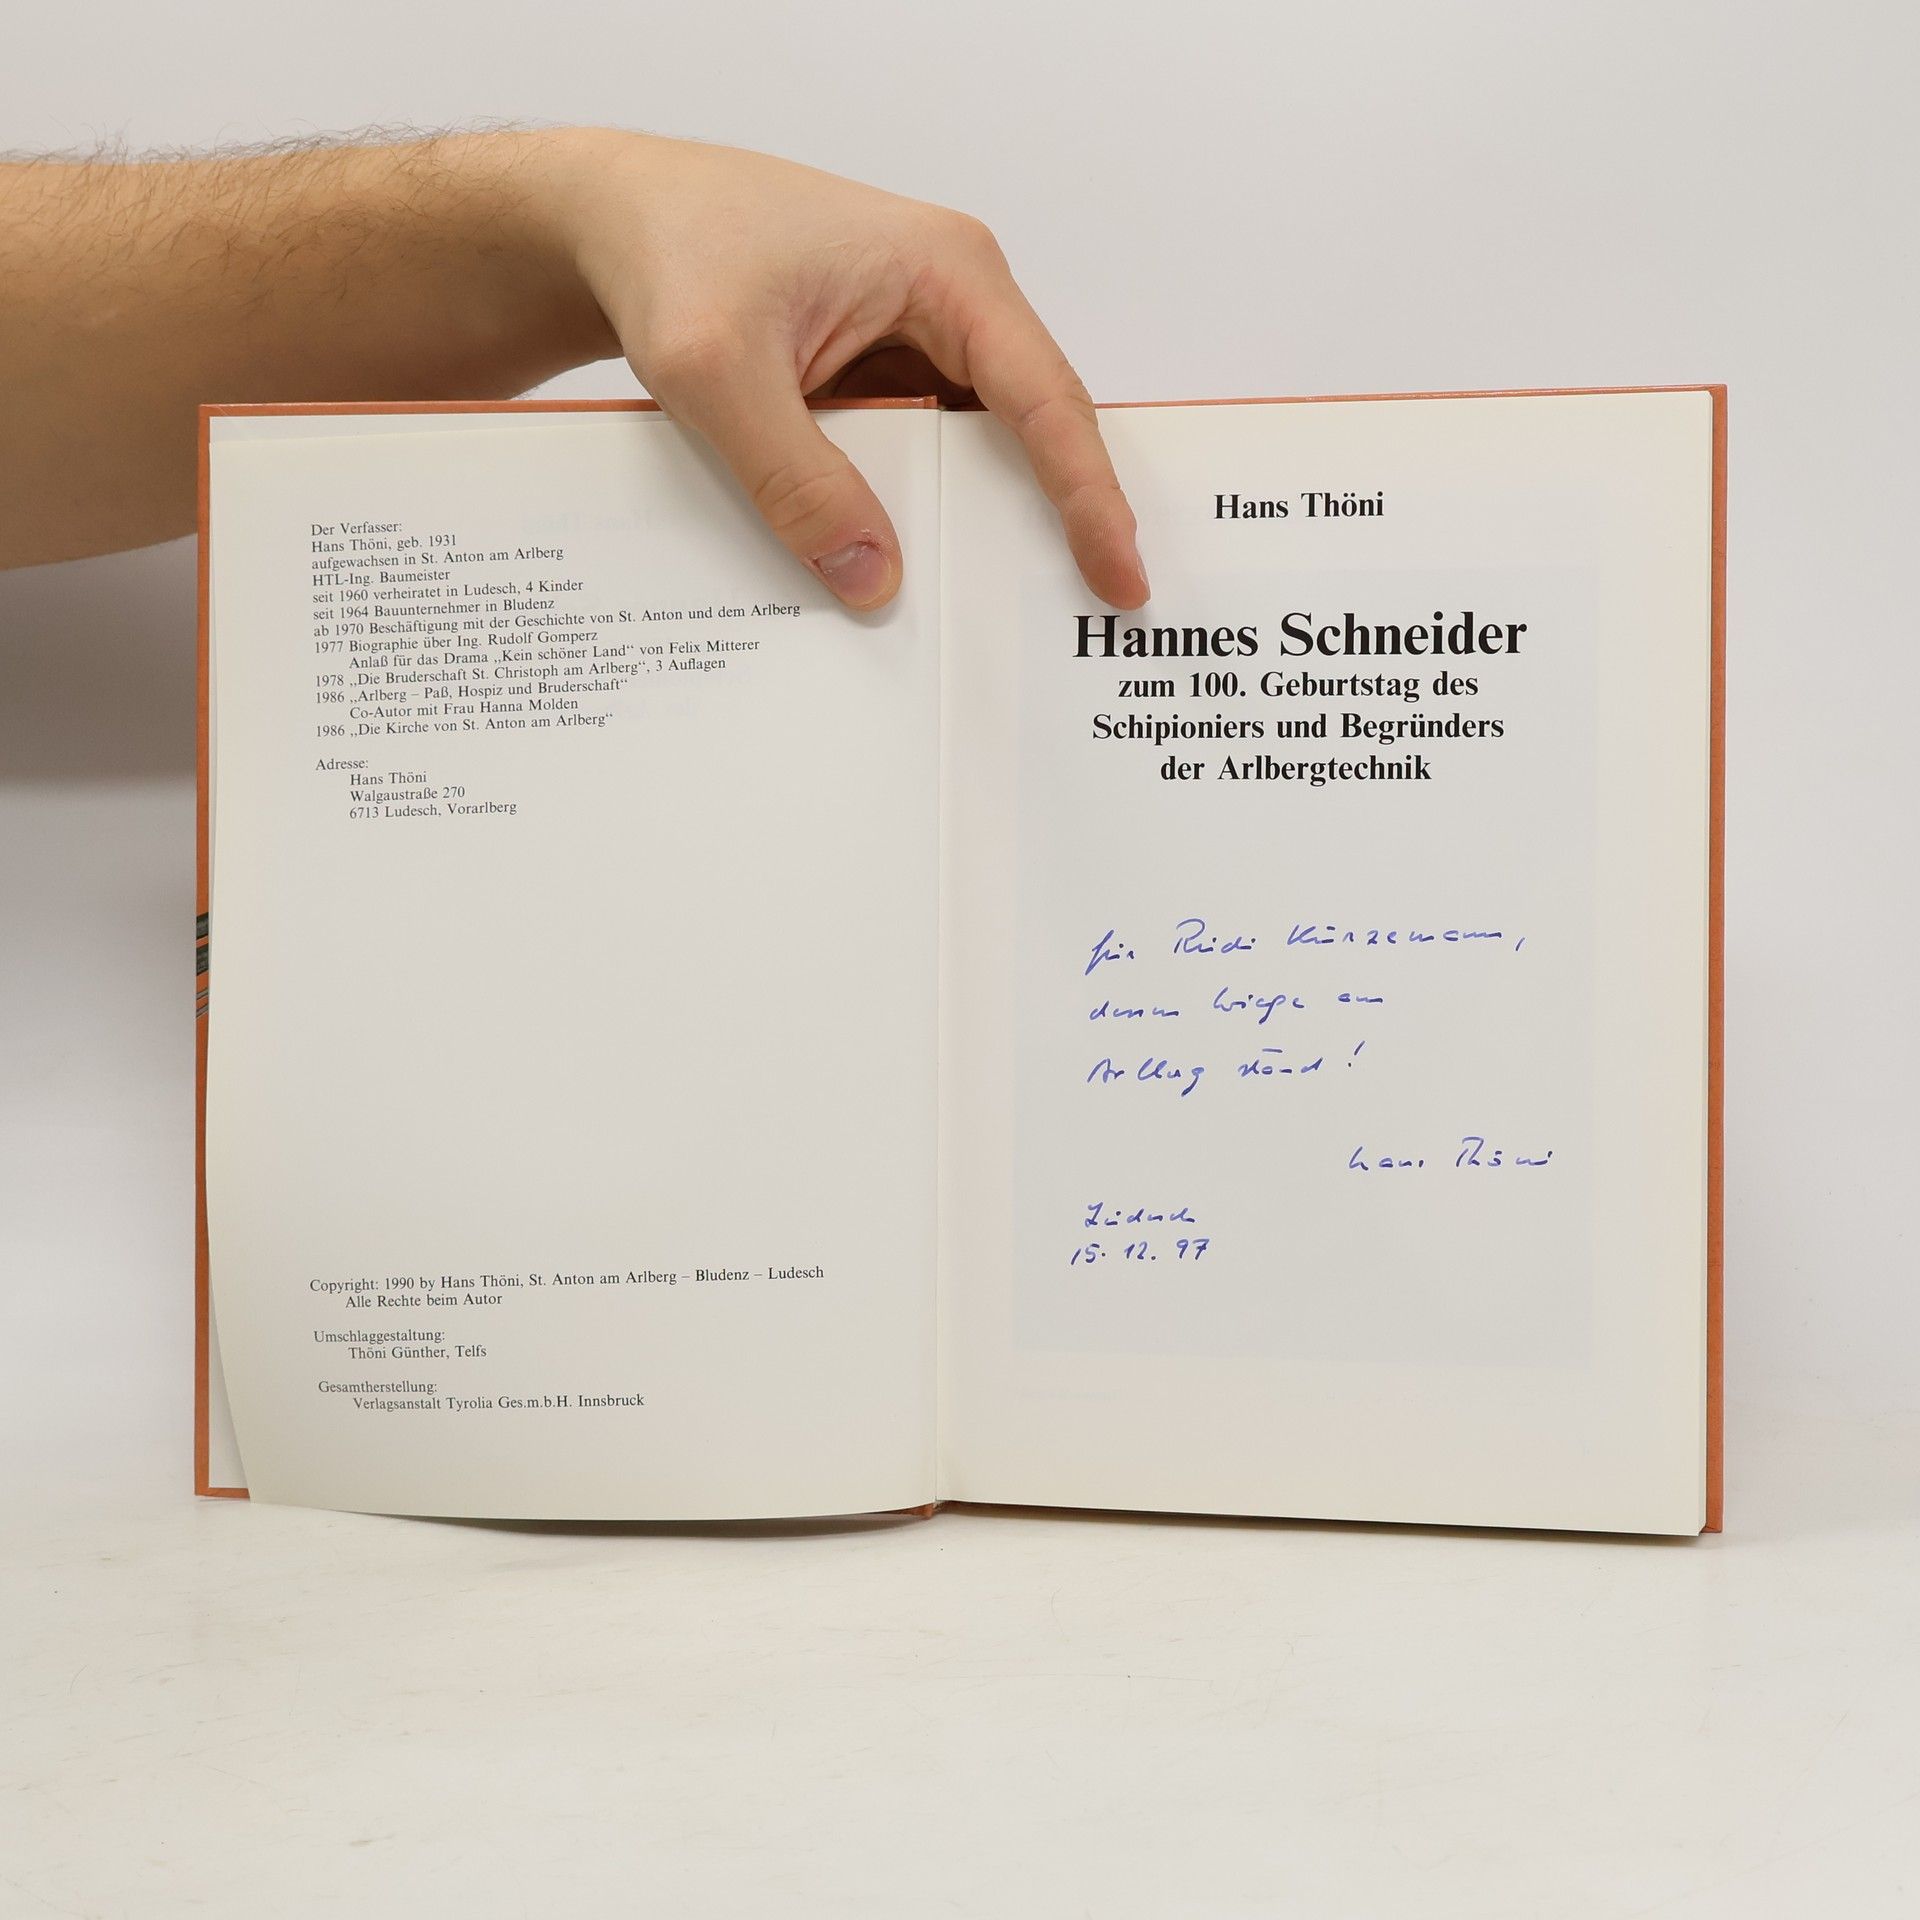 Der Verfasser:
Hans Thöni, geb. 1931
aufgewachsen in St. Anton am Arlberg
HTL-Ing. Baumeister
seit 1960 verheiratet in Ludesch, 4 Kinder
seit 1964 Bauunternehmer in Bludenz
ab 1970 Beschäftigung mit der Geschichte von St. Anton und dem Arlberg
1977 Biographie über Ing. Rudolf Gomperz
Anlaß für das Drama „Kein schöner Land“ von Felix Mitterer
1978 „Die Bruderschaft St. Christoph am Arlberg“, 3 Auflagen
1986 „Arlberg – Paß, Hospiz und Bruderschaft“
Co-Autor mit Frau Hanna Molden
1986 „Die Kirche von St. Anton am Arlberg“
Adresse:
Hans Thöni
Walgaustraße 270
6713 Ludesch, Vorarlberg
Copyright: 1990 by Hans Thöni, St. Anton am Arlberg – Bludenz – Ludesch
Alle Rechte beim Autor
Umschlaggestaltung:
Thöni Günther, Telfs
Gesamtherstellung:
Verlagsanstalt Tyrolia Ges.m.b.H. Innsbruck
Hans Thöni
Hannes Schneider
zum 100. Geburtstag des
Schipioniers und Begründers
der Arlbergtechnik
für Rudi Kürzemann,
dessen Wiege am
Arlberg stand!
Hans Thöni
Ludesch
15. 12. 97